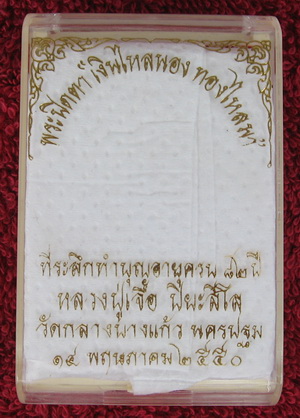 พระปิดตา เงินไหลนอง ทองไหลมา
ที่ระลึกทำบุญอายุครบ ๘๒ ปี
หลวงปู่เจือ ปิยะสีโล
วัดกลางบางแก้ว นครปฐม
๑๔ พฤษภาคม ๒๕๕๐